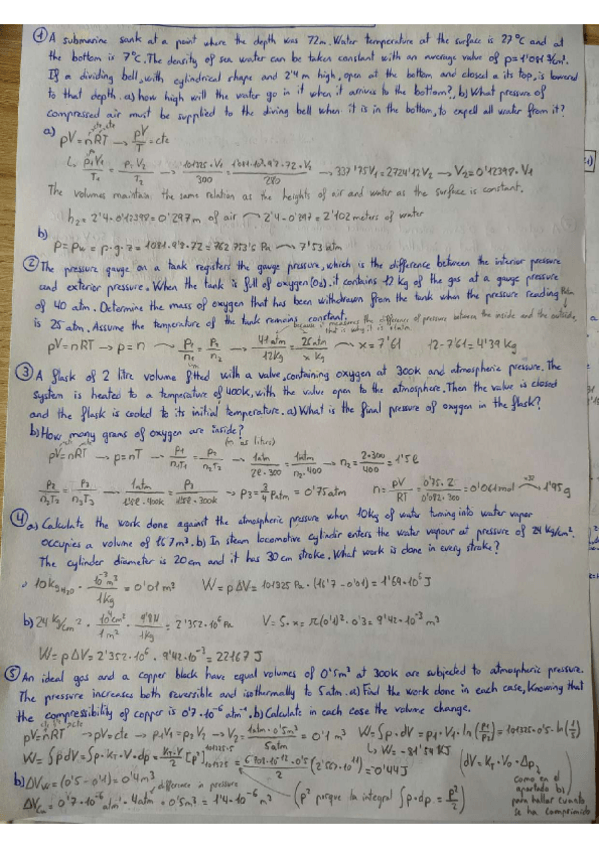 ① A submarine sank at a point where the depth was 72m. Water temperature at the surface is 27°C and at
the bottom is 7°C. The density of sea water can be taken constant with an average value of
If a dividing bell, with cylindrical shape and 2'4 m high, open at the bottom and closed a its top, is lowered
to that depth. a) how high will the water go in it when it arrives to the bottom?, b) What pressure of
compressed air must be supplied to the diving bell when it is in the bottom, to expell all water from it?
a) pV = nRT → pV/T = cte
p₁V₁/T₁ = p₂V₂/T₂ → 101325·V₁/300 = /280 → 337'75V₁ = 2724'12V₂ → V₂ = 0'12398·V₁
The volumes maintain the same relation as the heights of air and water as the surface is constant.
h₂ = 2'4·0'12398 = 0'297m of air → 2'4-0'297 = 2'102 meters of water
b)
p = pw = p·g·z = = Pa → 7'53 atm
② The pressure gauge on a tank registers the gauge pressure, which is the difference between the interior pressure
and exterior pressure. When the tank is full of oxygen (O₂), it contains 12 Kg of the gas at a gauge pressure
of 40 atm. Determine the mass of oxygen that has been withdrawn from the tank when the pressure reading
is 25 atm. Assume the temperature of the tank remains constant.
because it measures the difference of pressure between the inside and the outside,
that is why it is +1atm
pV = nRT → p = n → p₁/n₁ = p₂/n₂ → 41 atm/12Kg = 26atm/x Kg → x = 7'61 12-7'61 = 4'39 Kg
③ A flask of 2 litre volume fitted with a valve, containing oxygen at 300k and atmospheric pressure. The
system is heated to a temperature of 400k, with the valve open to the atmosphere. Then the valve is closed
and the flask is cooled to its initial temperature. a) What is the final pressure of oxygen in the flask?
b) How many grams of oxygen are inside?
(n in litres)
pV = nRT → p = nT → p₁/n₁T₁ = p₂/n₂T₂ → 1atm/2l·300 = 1atm/n₂·400 → n₂ = 2·300/400 = 1'5l
p₂/n₂T₂ = p₃/n₃T₃ → 1atm/1'5l·400k = p₃/1'5l·300k → p₃ = 3/4 Patm = 0'75atm n = pV/RT = 0'75·2/0'082·300 = 0'061mol → 1'95g
④ a) Calculate the work done against the atmospheric pressure when 10kg of water turning into water vapor
occupies a volume of 16'7m³. b) In steam locomotive cylinder enters the water vapour at pressure of 24 Kg/cm².
The cylinder diameter is 20cm and it has 30cm stroke. What work is done in every stroke?
10kg H₂O · 10⁻³m³/1Kg = 0'01 m³ W = p ΔV = 101325 Pa·(16'7-0'01) = 1'69·10⁶ J
b) 24 Kg/cm² · 10⁴cm²/1m² · 9'8N/1Kg = 2'352·10⁶ Pa V = S·x = π(0'1)²·0'3 = 9'42·10⁻³ m³
W = pΔV = 2'352·10⁶·9'42·10⁻³ = 22167 J
⑤ An ideal gas and a copper block have equal volumes of 0'5m³ at 300k are subjected to atmospheric pressure.
The pressure increases both reversible and isothermally to 5atm. a) Find the work done in each case, knowing that
the compressibility of copper is 0'7·10⁻⁶ atm⁻¹. b) Calculate in each case the volume change.
pV = nRT → pV = cte → p₁V₁ = p₂V₂ → V₂ = 1atm·0'5m³/5atm = 0'1 m³ W = ∫p·dV = p₁·V₁·ln(p₁/p₂) = 101325·0'5·ln(1/5)
→ W = -81'54 KJ
W = ∫pdV = ∫p·kT·V·dp = kT·V/2 [p²] = 0'5 = 0'44J
(dV = KT·V₀·Δp,
como en el
apartado b)
para hallar cuanto
se ha comprimido)
b) ΔVw = (0'5-0'1) = 0'4m³
difference in pressure
ΔVCu = 0'7·10⁻⁶ atm⁻¹·4atm·0'5m³ = 1'4·10⁻⁶ m³ (p² porque la integral ∫p·dp = p²/2)